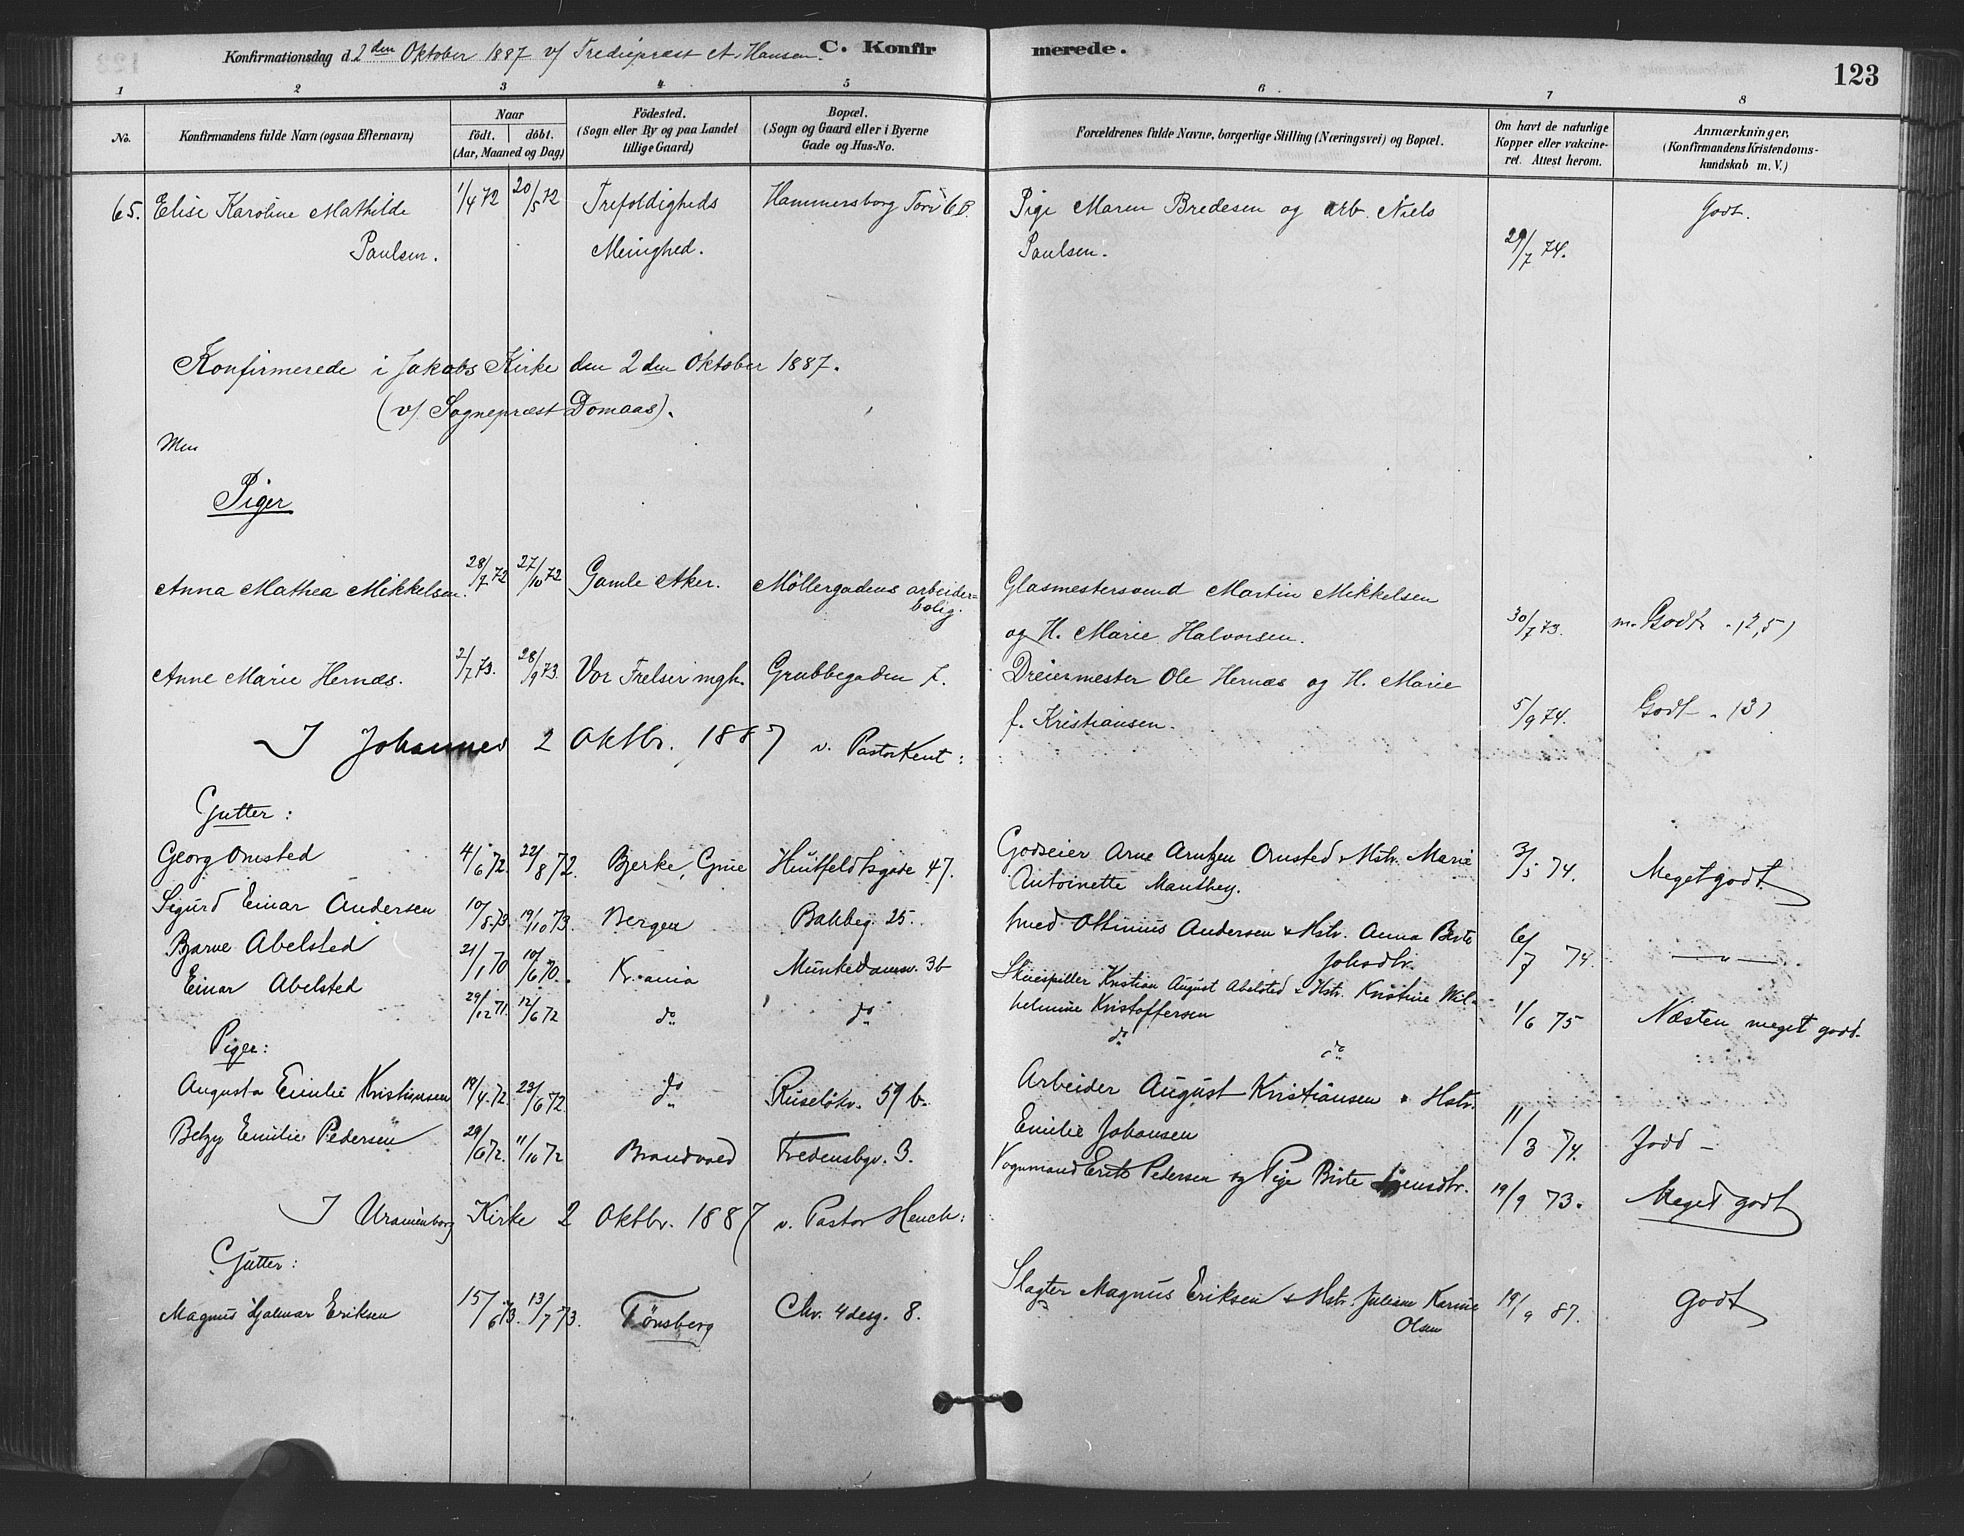 Konfirmationsdag d. 2den Oktober 1887 v/ Trediepræst A. Hansen. C. Konfirmerede. 123
1 2 3 4 5 6 7 8
No. Konfirmandens fulde Navn (ogsaa Efternavn) Naar födt. döbt. (Aar, Maaned og Dag) Födested. (Sogn eller By og paa Landet tillige Gaard) Bopæl. (Sogn og Gaard eller i Byerne Gade og Hus-No. Forældrenes fulde Navne, borgerlige Stilling (Næringsvei) og Bopæl. Om havt de naturlige Kopper eller vaccineret. Attest herom. Anmærkninger. (Konfirmandens Kristendomskundskab m. V.)
65. Elise Karoline Mathilde 1/4 72 20/5 72 Trefoldigheds Hammersborg Torv 6 B. Pige Maren Bredesen og arb. Niels Godt.
Paulsen. Menighed. Paulsen. 29/7 74.
Konfirmerede i Jakobs Kirke den 2den Oktober 1887.
(v/ Sognepræst Domaas).
Men
Piger
Anna Mathea Mikkelsen. 28/7 72 27/10 72 Gamle Aker. Möllergadens arbeider= Glasmestersvend Martin Mikkelsen
bolig. og H. Marie Halvorsen. 30/7 73. m. Godt. (2,5)
Anne Marie Hernæs. 2/7 73. 28/9 73. Vor Frelser mgh. Grubbegaden 7. Dreiermester Ole Hernæs og H. Marie
f. Kristiansen. 5/9 74. Godt. (3)
I Johannes 2 Oktbr. 1887 v. Pastor Kent:
Gutter:
Georg Omsted 4/6 72. 22/8 72. Bjerke, Grue Huitfeldtsgade 47. Godseier Arne Arntzen Omsted & Hstr. Marie 3/5 74. Meget godt.
Antoinette Manthey.
Sigurd Einar Andersen 10/8 73. 19/10 73. Bergen Bakkeg. 25. Andersen & Hstr. Anna 6/7 74 — " —
Johsdtr.
Bjarne Abelsted 21/1 70 10/6 70. Kr.ania Munkedamsv. 3b Skuespiller Kristian August Abelsted & Hstr. Kristine Wil-
helmine Kristoffersen 1/6 75 Næsten meget godt.
Einar Abelsted 29/12 71. 12/6 72 do do do do
Piger:
Augusta Emilie Kristiansen 19/4 72. 23/6 72. do Ruseløkv. 59 b. Arbeider August Kristiansen & Hstr.
Emilie Johansen 11/3 74. Godt –
Betzy Emilie Pedersen 29/6 72. 11/10 72 Brandvold Fredensbgv. 3. Vognmand Erik Pedersen og Pige Birte Jensdtr. 19/9 73. Meget godt
I Uranienborg Kirke 2 Oktbr. 1887 v. Pastor Heuch:
Gutter:
Magnus Hjalmar Eriksen 15/6 73. 13/7 73. Tönsberg Chr. 4desg. 8. Slagter Magnus Eriksen & Hstr. Juliane Karine 19/9 87. Godt
Olsen